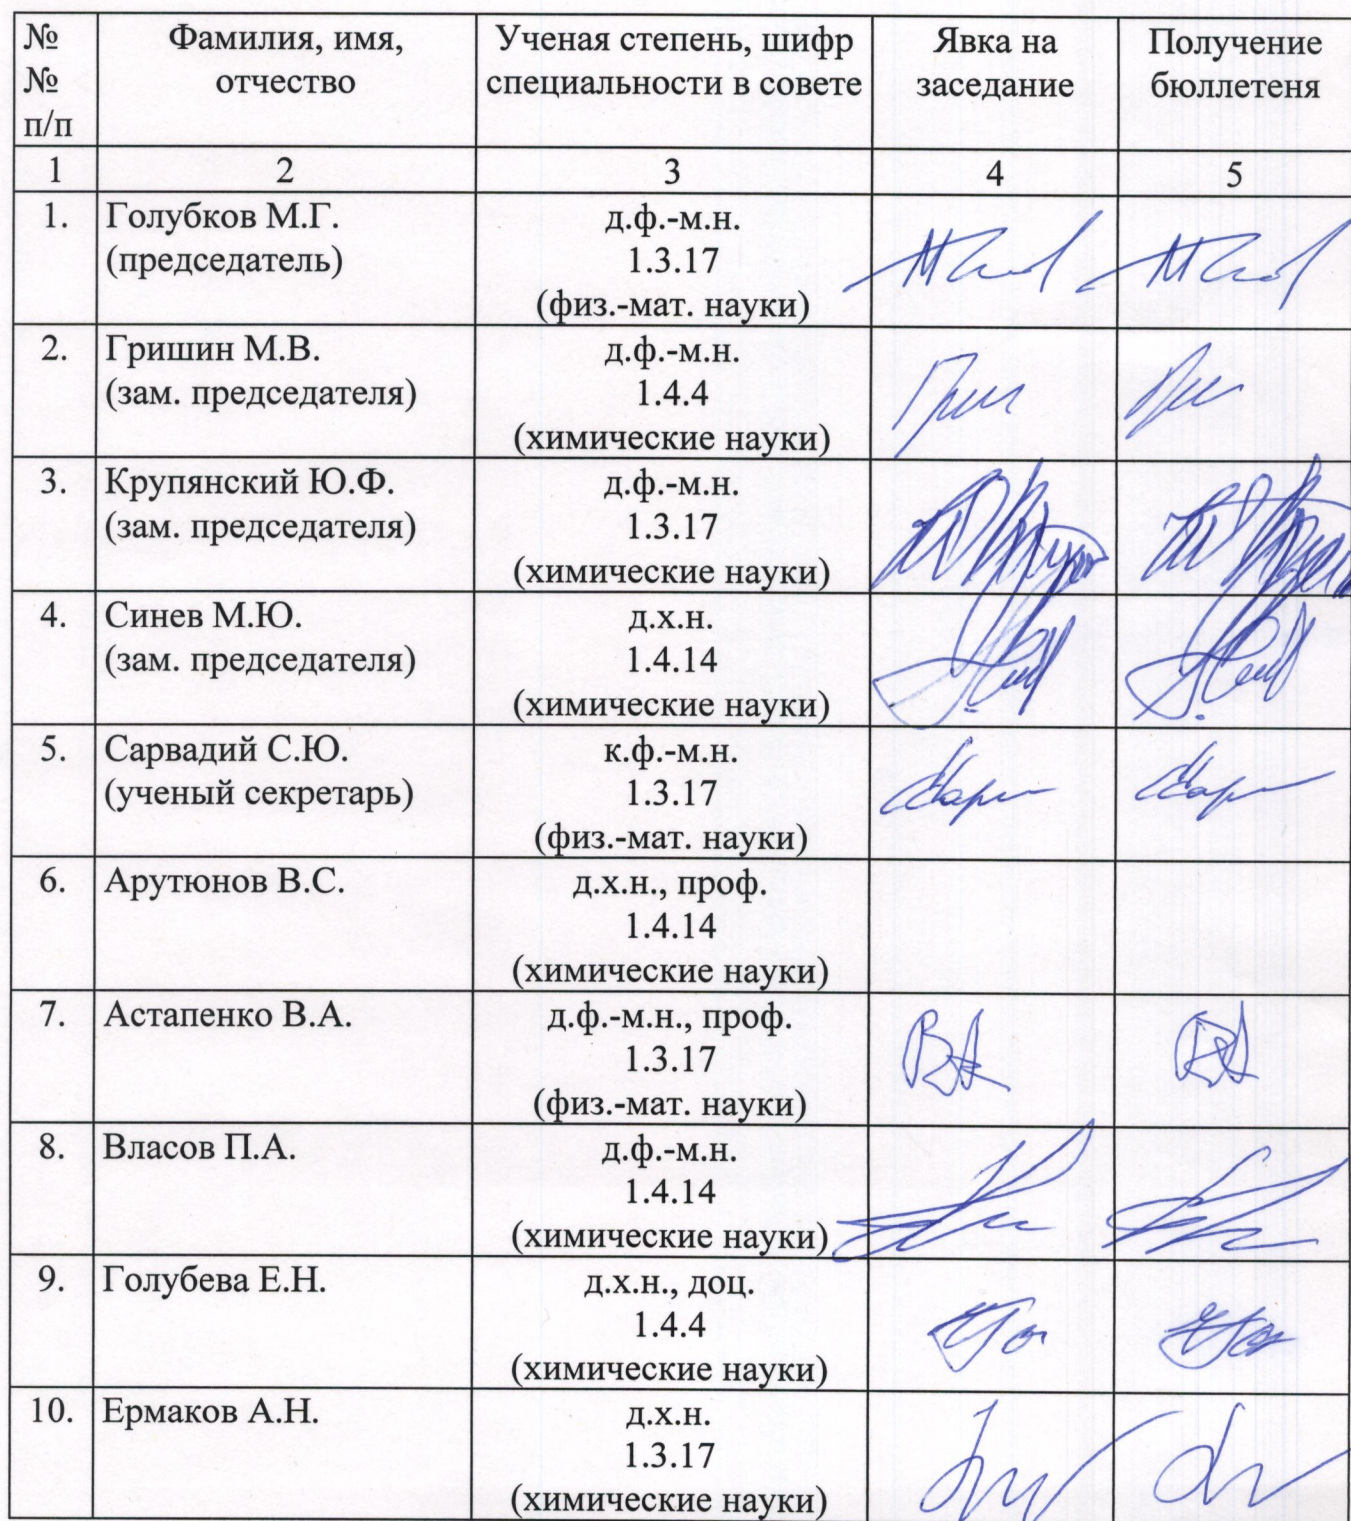 № Фамилия, имя, Ученая степень, шифр Явка на Получение
№ отчество специальности в совете заседание бюллетеня
п/п
1 2 3 4 5
1. Голубков М.Г. д.ф.-м.н.
(председатель) 1.3.17
(физ.-мат. науки)
2. Гришин М.В. д.ф.-м.н.
(зам. председателя) 1.4.4
(химические науки)
3. Крупянский Ю.Ф. д.ф.-м.н.
(зам. председателя) 1.3.17
(химические науки)
4. Синев М.Ю. д.х.н.
(зам. председателя) 1.4.14
(химические науки)
5. Сарвадий С.Ю. к.ф.-м.н.
(ученый секретарь) 1.3.17
(физ.-мат. науки)
6. Арутюнов В.С. д.х.н., проф.
1.4.14
(химические науки)
7. Астапенко В.А. д.ф.-м.н., проф.
1.3.17
(физ.-мат. науки)
8. Власов П.А. д.ф.-м.н.
1.4.14
(химические науки)
9. Голубева Е.Н. д.х.н., доц.
1.4.4
(химические науки)
10. Ермаков А.Н. д.х.н.
1.3.17
(химические науки)